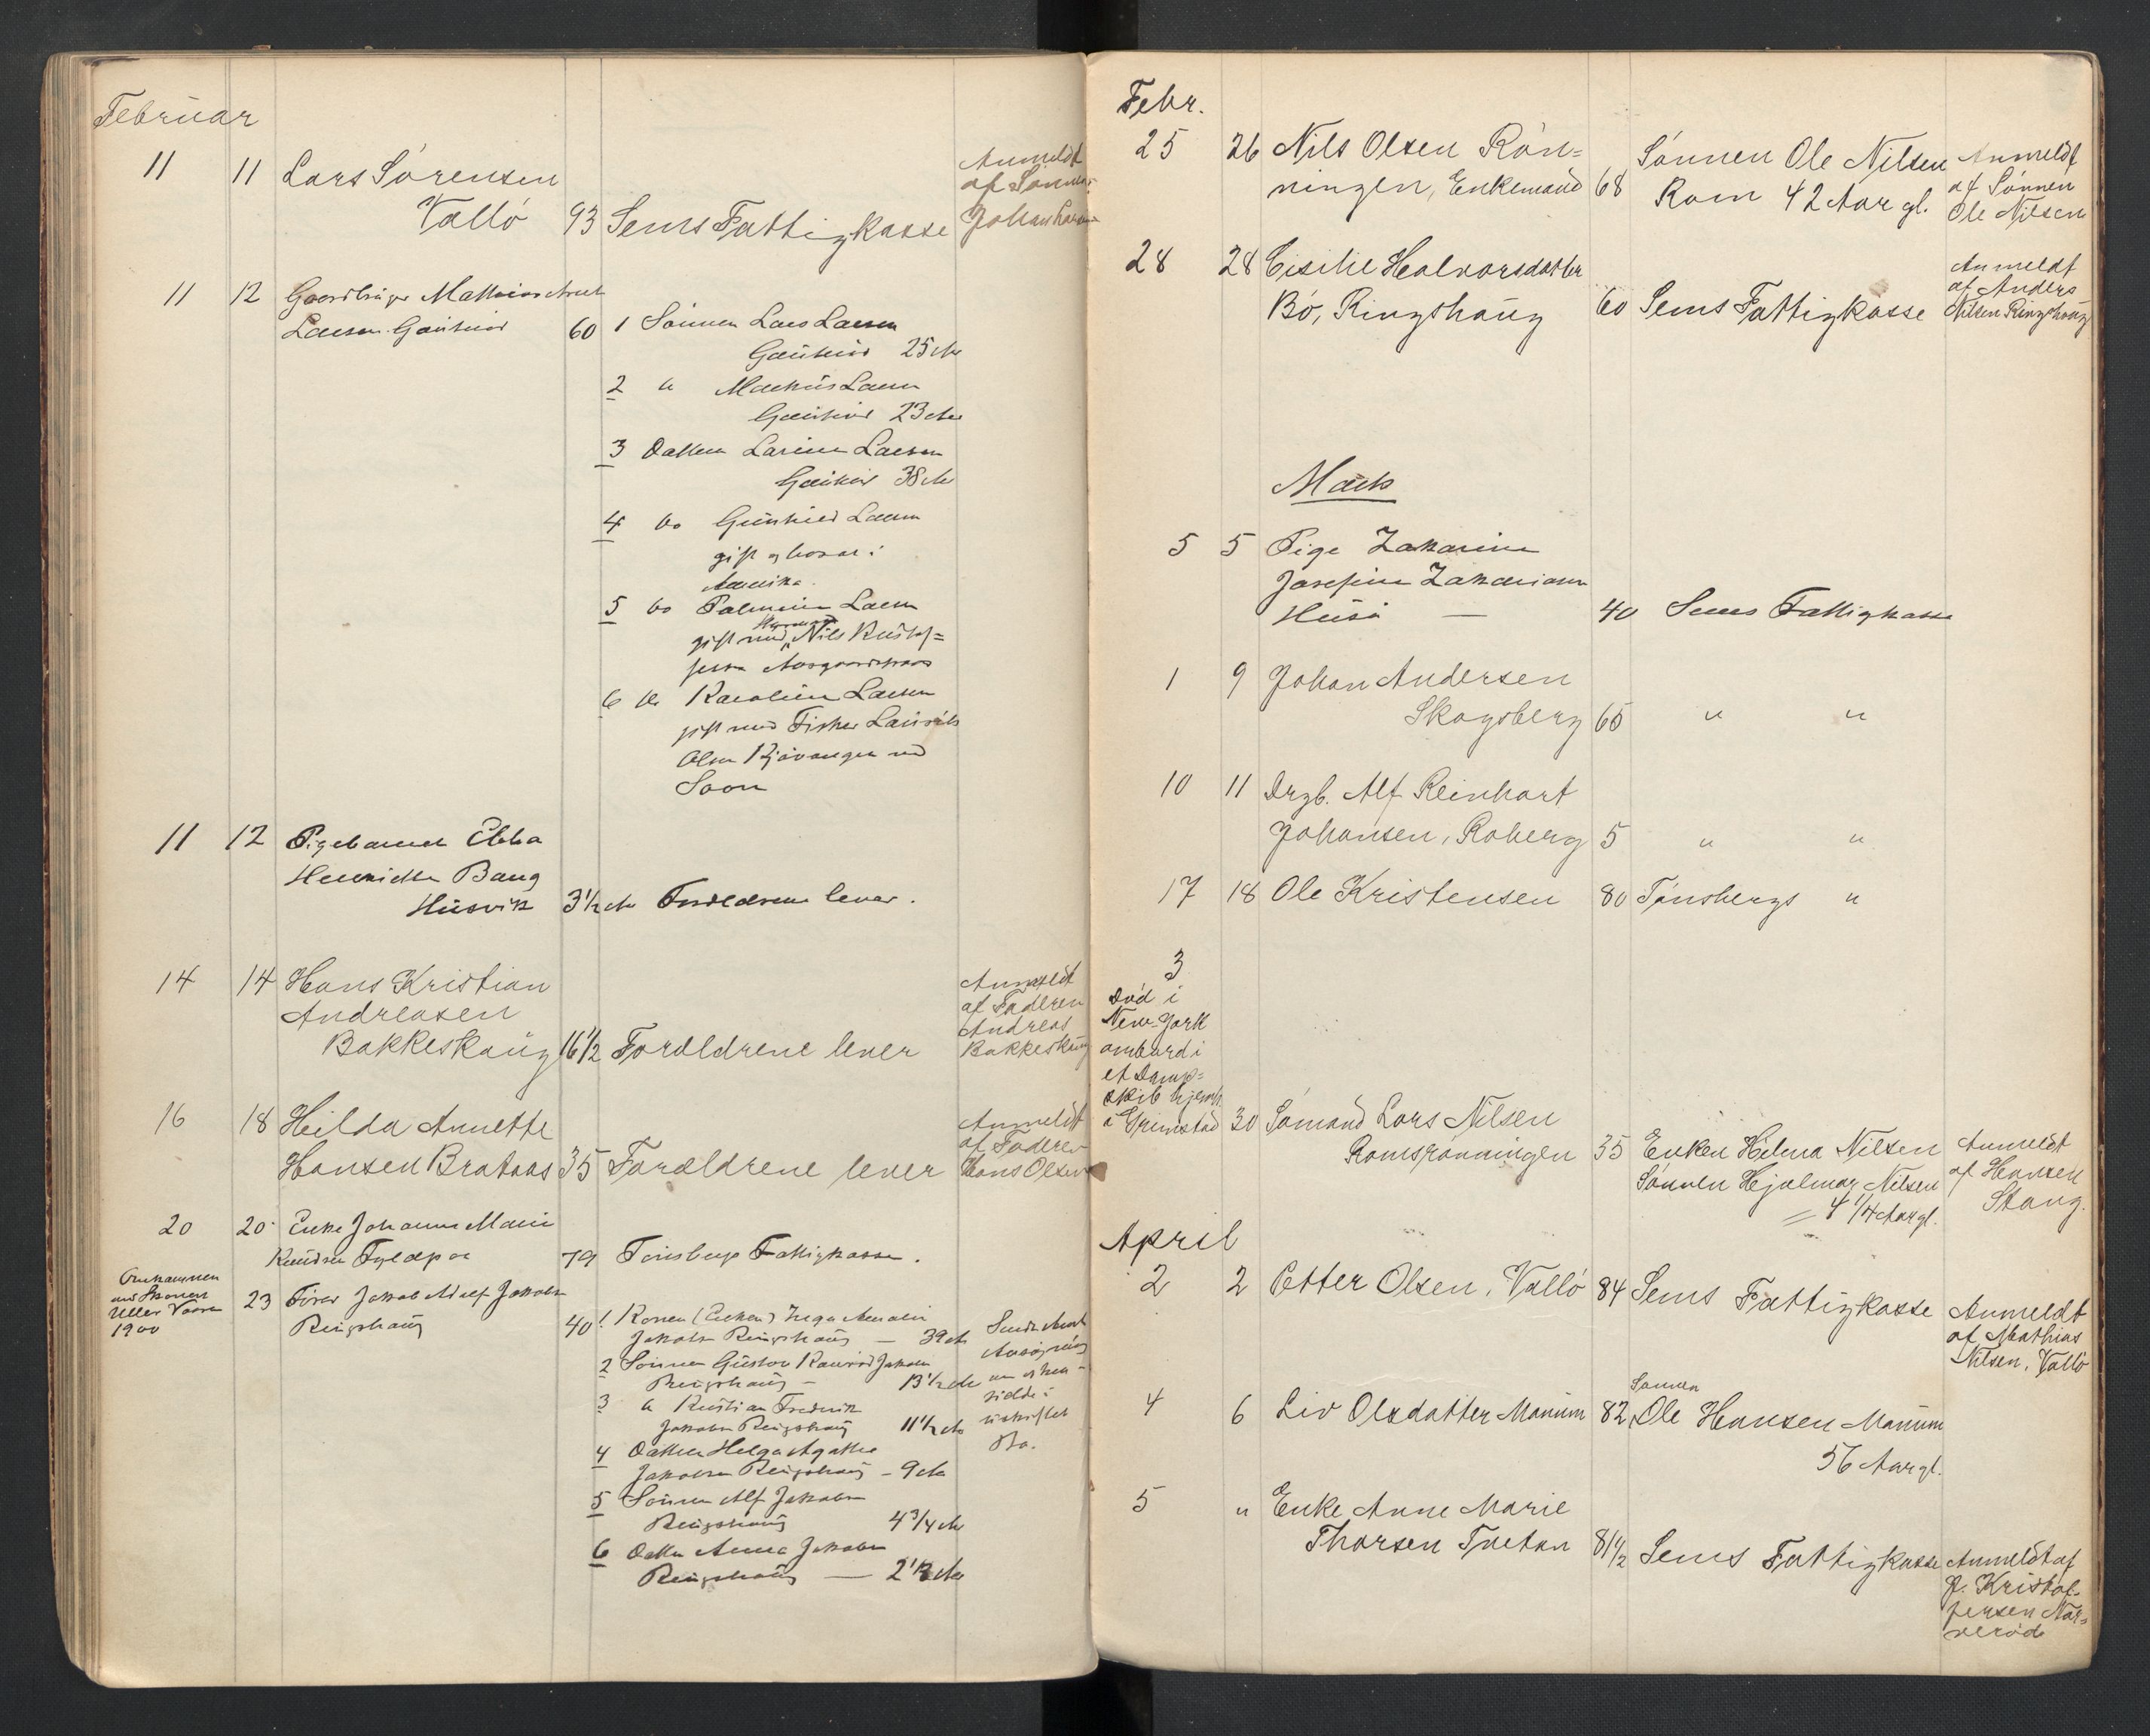 Februar
11 11 Lars Sørensen
Vallø 93 Sems Fattigkasse
Anmeldt
af Sønnen
Johan Larsen
11 12 Gaardbruger Mathias
Larsen 60 1 Sønnen Lars Larsen
25 Aar
2 " Markus Larsen
23 Aar
3 Datteren Larine Larsen
38 Aar
4 do Gunhild Larsen
gift og bosat i
Amerika
5 do Palmine Larsen
gift med Nils Kristof=
fersen
6 do Karoline Larsen
gift med Fisker Lauritz
Olsen ved
Soon
11 12 Pigebarnet Ebba
Henriette Bang
Husvik 3½ Aar Forældrene lever.
14 14 Hans Kristian
Andreasen
Bakkeskaug 16½ Forældrene lever
Anmeldt
af Faderen
Andreas
Bakkeskaug
16 18 Hilda Annette
Hansen Brataas 35 Forældrene lever
Anmeldt
af Faderen
Hans Olsen
20 20 Enke Johanne Marie
Knudsen 79 Tønsbergs Fattigkasse.
Omkommen
Uller
1900
23 Jakob Adolf Jakobsen
Ringshaug 40 1 Konen (Enken) Inga Amalie
Jakobsen Ringshaug — 39 Aar
2 Sønnen Gustav Konrad Jakobsen
Ringshaug — 13½ Aar
3 " Kristian Fredrik
Jakobsen Ringshaug 11½ Aar
4 Datter Helga Agathe
Jakobsen Ringshaug — 9 Aar
5 Sønnen Alf Jakobsen
Ringshaug 4¾ Aar
6 Datter Anna Jakobsen
Ringshaug — 2½ Aar
uskiftet
Bo.
Febr.
25 26 Nils Olsen Røn=
ningen, Enkemand 68
Sønnen Ole Nilsen
Rom 42 Aar gl.
Anmeldt
af Sønnen
Ole Nilsen
28 28 Cisilie Halvorsdatter
Bø, Ringshaug 60 Sems Fattigkasse
Anmeldt
af Anders
Nilsen Ringshaug
Marts
5 5 Pige Zakarine
Josefine Zakariasen
Husø — 40 Sems Fattigkasse
1 9 Johan Andersen
Skogsberg 65 " "
10 11 Drgb. Alf Reinhart
Johansen, Roberg 5 " "
17 18 Ole Kristensen 80 Tønsbergs "
3
Død i
New-York
ombord i
et Damp=
skib hjemh.
i Grimstad 30 Sømand Lars Nilsen
Romsrønningen 35 Enken Hilma Nilsen
Sønnen Hjalmar Nilsen
= 4 1/4 Aar gl.
Anmeldt
af Hansen
Stang.
April
2 2 Petter Olsen, Vallø 84 Sems Fattigkasse
Anmeldt
af Mathias
Nilsen, Vallø
4 6 Liv Olsdatter Manum 82 Sønnen
Ole Hansen Manum
56 Aar gl.
5 " Enke Anne Marie
Thorsen Tveten 81½ Sems Fattigkasse
Anmeldt af
P. Kristof=
fersen Nar=
verød